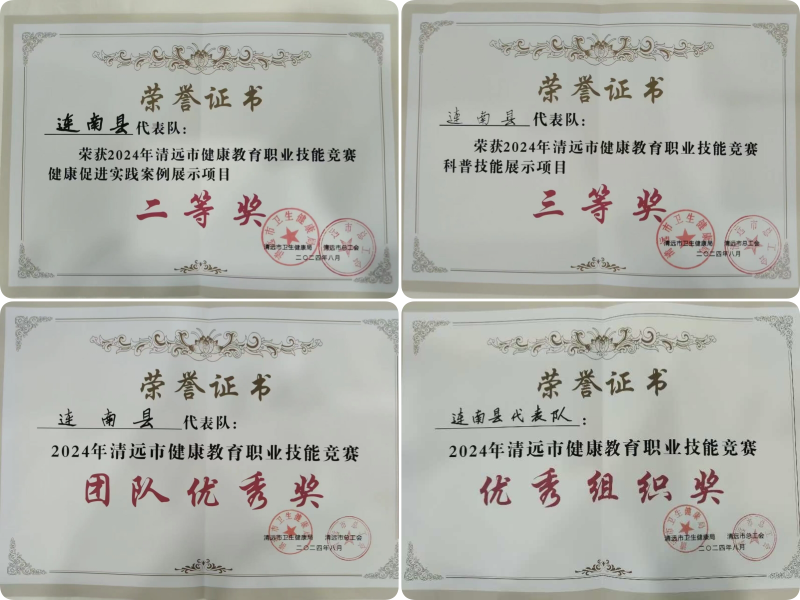 荣誉证书
连南县代表队：
荣获2024年清远市健康教育职业技能竞赛
健康促进实践案例展示项目
二等奖
清远市卫生健康局 清远市总工会
二〇二四年八月
荣誉证书
连南县代表队：
荣获2024年清远市健康教育职业技能竞赛
科普技能展示项目
三等奖
清远市卫生健康局 清远市总工会
二〇二四年八月
荣誉证书
连南县代表队：
2024年清远市健康教育职业技能竞赛
团队优秀奖
清远市卫生健康局 清远市总工会
二〇二四年八月
荣誉证书
连南县代表队：
2024年清远市健康教育职业技能竞赛
优秀组织奖
清远市卫生健康局 清远市总工会
二〇二四年八月